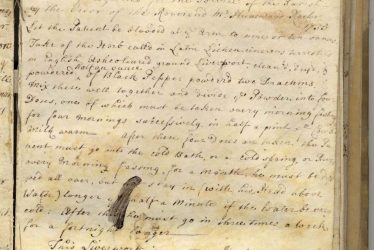 by the Favor of the Reverend Mr
Let the Patient be blooded at ye Arm to nine or ten ounces
Take of the Herb called in Latin Lichen cinereus terrestris
in English Ashcoloured ground Liverwort, clean'd, dry'd, &
powdered half an ounce of Black Pepper powdered two Drachms
Mix these well together and divide ye Powder into four
Doses, one of which must be taken every morning fasting
for four mornings successively in half a pint of Cows
Milk warm. After these four Doses are taken, the Patient
must go into the Cold Bath, or a cold Spring or River
every Morning fasting, for a Month, he must be
all over, but stay in (with his Head above
Water) longer half a Minute if the Water be very
cold: After this he must go in three times a Week
for a fortnight longer